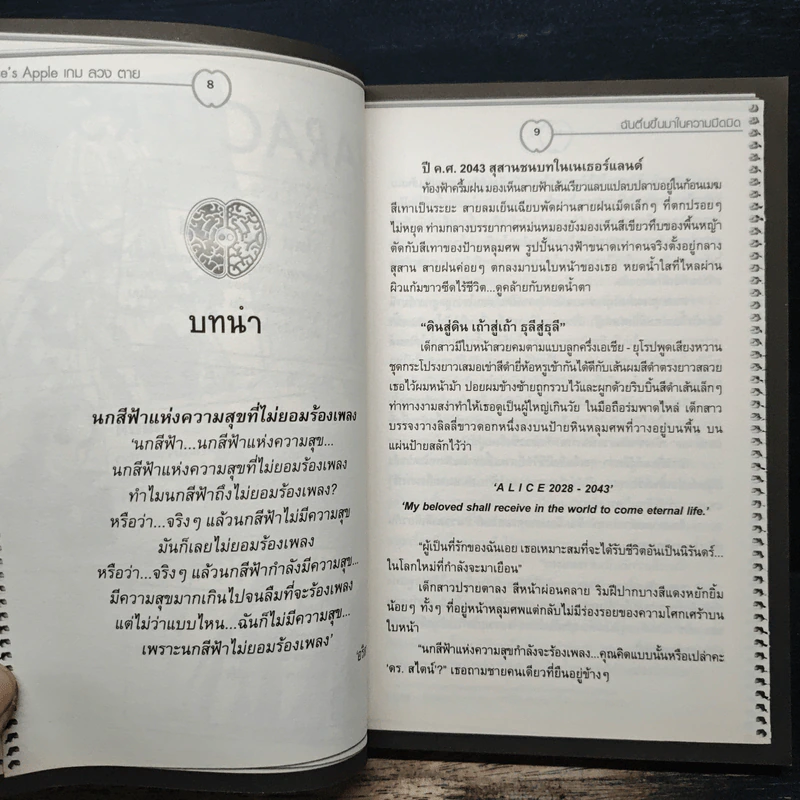 e's Apple เกม ลวง ตาย
8
บทนำ
นกสีฟ้าแห่งความสุขที่ไม่ยอมร้องเพลง
'นกสีฟ้า...นกสีฟ้าแห่งความสุข...
นกสีฟ้าแห่งความสุขที่ไม่ยอมร้องเพลง
ทำไมนกสีฟ้าถึงไม่ยอมร้องเพลง?
หรือว่า...จริงๆ แล้วนกสีฟ้าไม่มีความสุข
มันก็เลยไม่ยอมร้องเพลง
หรือว่า...จริงๆ แล้วนกสีฟ้ากำลังมีความสุข...
มีความสุขมากเกินไปจนลืมที่จะร้องเพลง
แต่ไม่ว่าแบบไหน...ฉันก็ไม่มีความสุข...
เพราะนกสีฟ้าไม่ยอมร้องเพลง'
9
ฉันตื่นขึ้นมาในความมืดมิด
ปี ค.ศ. 2043 สุสานชนบทในเนเธอร์แลนด์
ท้องฟ้าครึ้มฝน มองเห็นสายฟ้าเส้นเรียวแลบแปลบปลาบอยู่ในก้อนเมฆ
สีเทาเป็นระยะ สายลมเย็นเฉียบพัดผ่านสายฝนเม็ดเล็กๆ ที่ตกปรอยๆ
ไม่หยุด ท่ามกลางบรรยากาศหม่นหมองยังมองเห็นสีเขียวทึบของพื้นหญ้า
ตัดกับสีเทาของป้ายหลุมศพ รูปปั้นนางฟ้าขนาดเท่าคนจริงตั้งอยู่กลาง
สุสาน สายฝนค่อยๆ ตกลงมาบนใบหน้าของเธอ หยดน้ำใสที่ไหลผ่าน
ผิวแก้มขาวซีดไร้ชีวิต...ดูคล้ายกับหยดน้ำตา
"ดินสู่ดิน เถ้าสู่เถ้า ธุลีสู่ธุลี"
เด็กสาวมีใบหน้าสวยคมตามแบบลูกครึ่งเอเชีย - ยุโรปพูดเสียงหวาน
ชุดกระโปรงยาวเสมอเข่าสีดำยี่ห้อหรูเข้ากันได้ดีกับเส้นผมสีดำตรงยาวสลวย
เธอไว้ผมหน้าม้า ปอยผมข้างซ้ายถูกรวบไว้และผูกด้วยริบบิ้นสีดำเส้นเล็กๆ
ท่าทางงามสง่าทำให้เธอดูเป็นผู้ใหญ่เกินวัย ในมือถือร่มพาดไหล่ เด็กสาว
บรรจงวางลิลลี่ขาวดอกหนึ่งลงบนป้ายหินหลุมศพที่วางอยู่บนพื้น บน
แผ่นป้ายสลักไว้ว่า
'A L I C E 2028 - 2043'
'My beloved shall receive in the world to come eternal life.'
"ผู้เป็นที่รักของฉันเอย เธอเหมาะสมที่จะได้รับชีวิตอันเป็นนิรันดร์...
ในโลกใหม่ที่กำลังจะมาเยือน"
เด็กสาวปรายตาลง สีหน้าผ่อนคลาย ริมฝีปากบางสีแดงหยักยิ้ม
น้อยๆ ทั้งๆ ที่อยู่หน้าหลุมศพแต่กลับไม่มีร่องรอยของความโศกเศร้าบน
ใบหน้า
"นกสีฟ้าแห่งความสุขกำลังจะร้องเพลง...คุณคิดแบบนั้นหรือเปล่าคะ
'ดร. สไตน์'?" เธอถามชายคนเดียวที่ยืนอยู่ข้างๆ